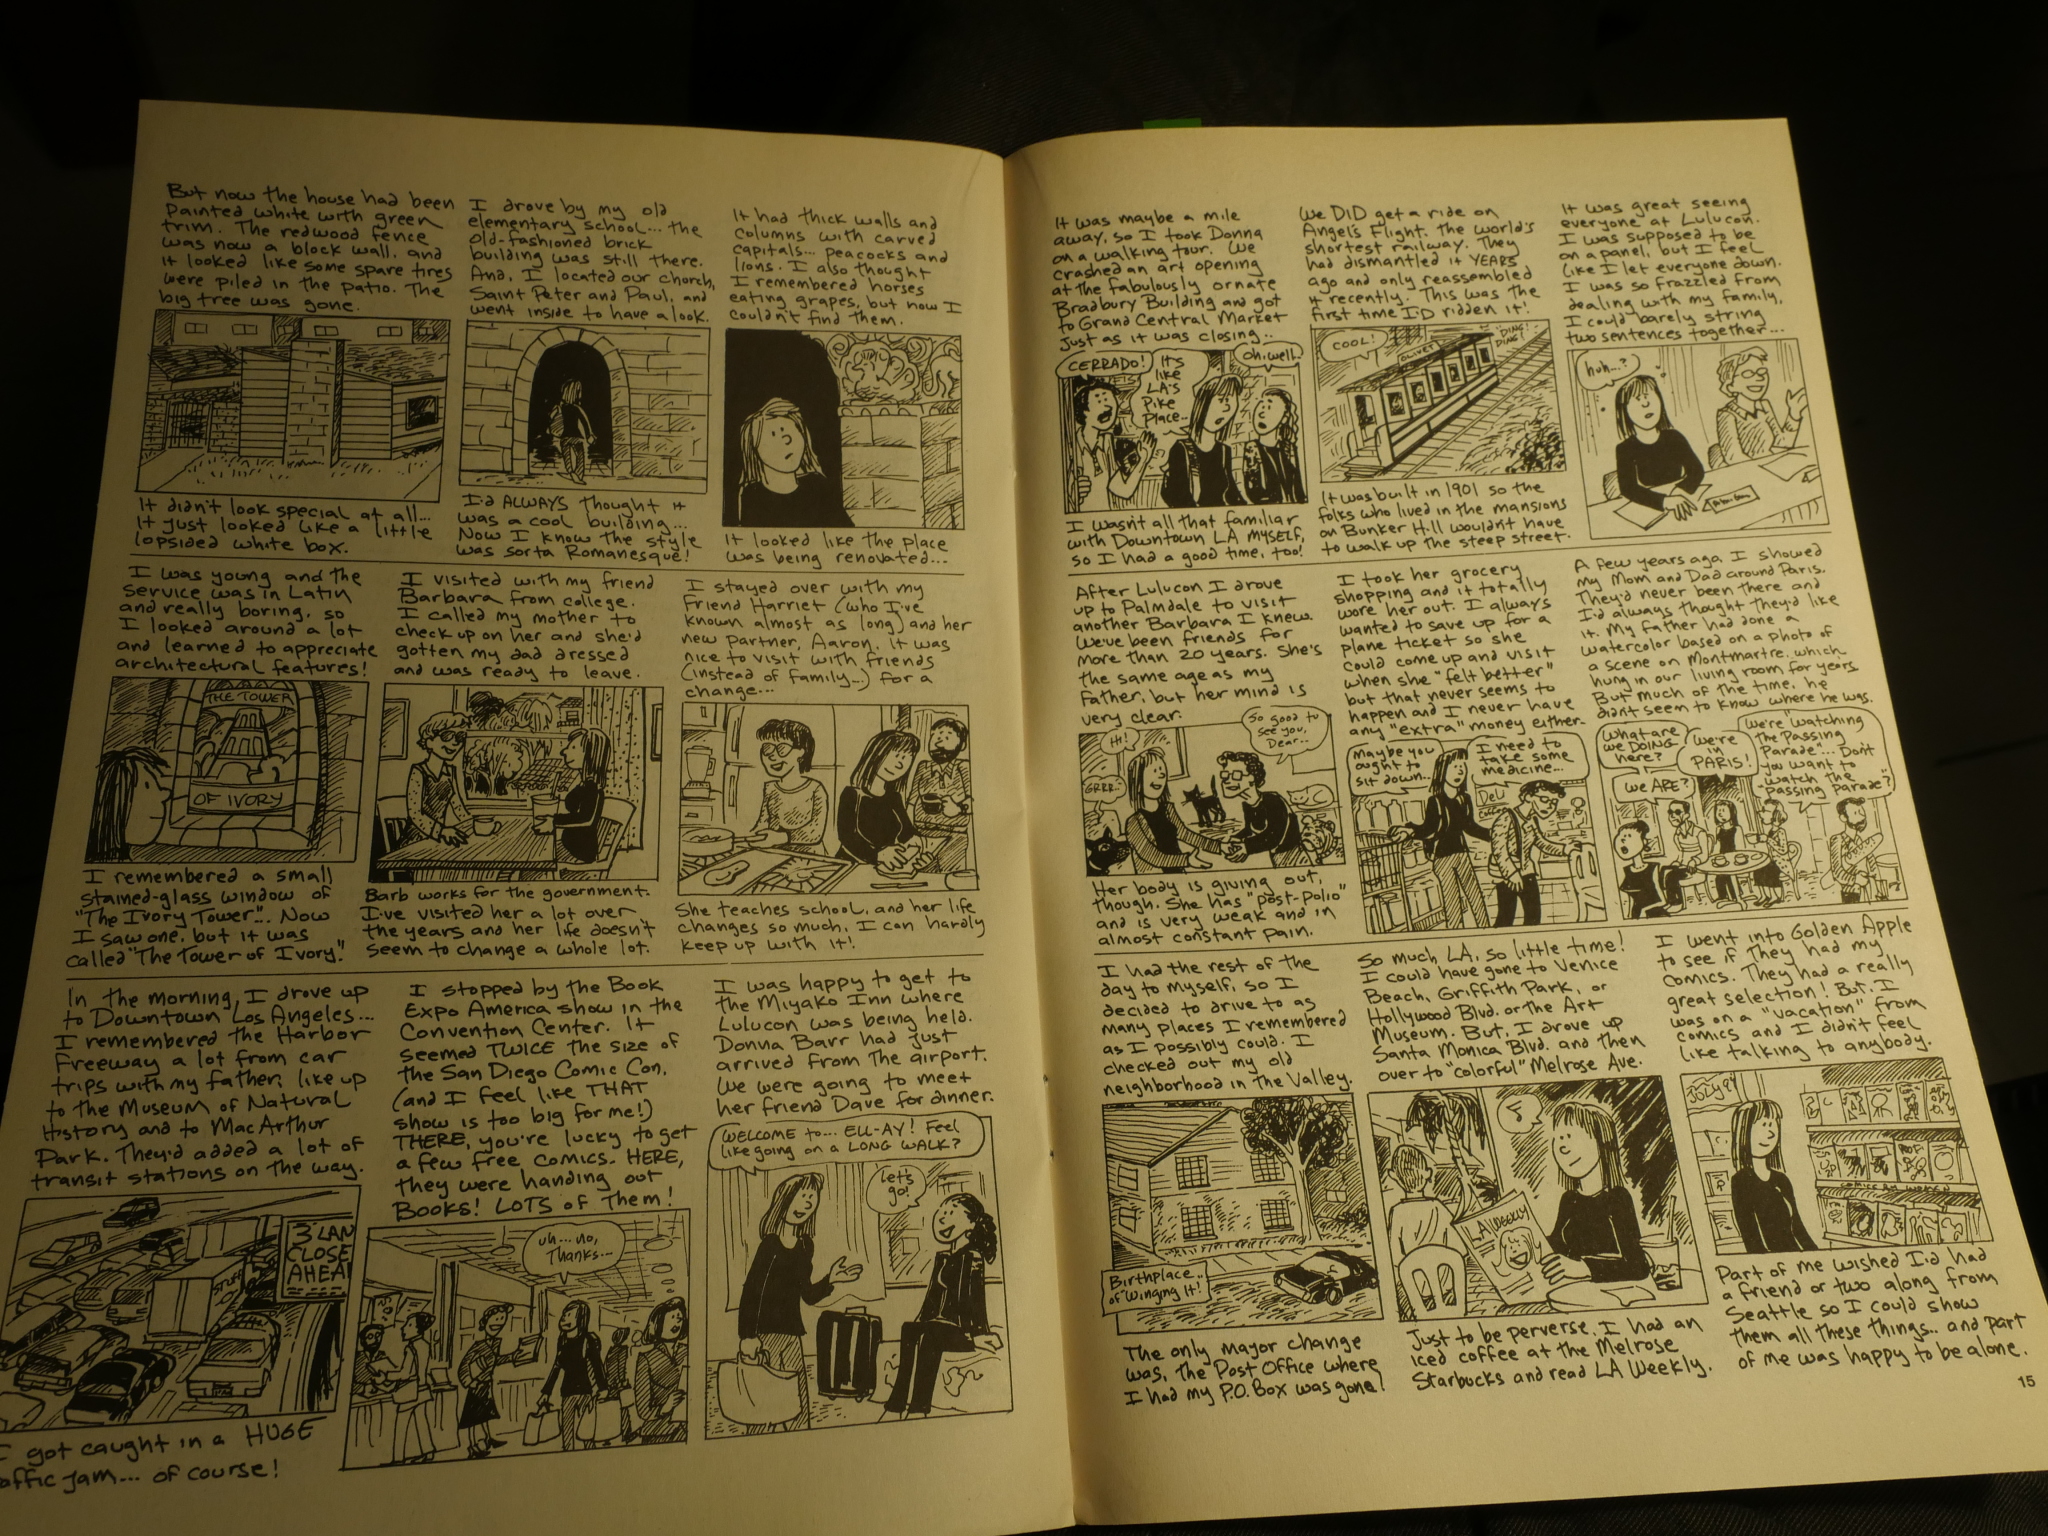 But now the house had been
painted white with green
trim. The redwood fence
was now a block wall, and
it looked like some spare tires
were piled in the patio. The
big tree was gone.
It didn't look special at all...
It just looked like a little
lopsided white box.
I drove by my old
elementary school... the
old-fashioned brick
building was still there.
And, I located our church,
Saint Peter and Paul, and
went inside to have a look.
I'd ALWAYS thought it
was a cool building...
Now I know the style
was sorta Romanesque!
It had thick walls and
columns with carved
capitals... peacocks and
lions. I also thought
I remembered horses
eating grapes, but now I
couldn't find them.
It looked like the place
was being renovated...
I was young and the
service was in Latin
and really boring, so
I looked around a lot
and learned to appreciate
architectural features!
THE TOWER
OF IVORY
I remembered a small
stained-glass window of
"The Ivory Tower"... Now
I saw one, but it was
called "The Tower of Ivory."
I visited with my friend
Barbara from college.
I called my mother to
check up on her and she'd
gotten my dad dressed
and was ready to leave.
Barb works for the government.
I've visited her a lot over
the years and her life doesn't
seem to change a whole lot.
I stayed over with my
Friend Harriet (who I've
known almost as long) and her
new partner, Aaron. It was
nice to visit with friends
(instead of family...) for a
change...
She teaches school, and her life
changes so much, I can hardly
keep up with it!
In the morning, I drove up
to Downtown Los Angeles...
I remembered the Harbor
Freeway a lot from car
trips with my father; like up
to the Museum of Natural
History and to MacArthur
Park. They'd added a lot of
transit stations on the way.
3 LAN
CLOSE
AHEA
I got caught in a HUGE
affic jam... of course!
I stopped by the Book
Expo America show in the
Convention Center. It
seemed TWICE the size of
the San Diego Comic Con.
(and I feel like THAT
show is too big for me!)
THERE, you're lucky to get
a few free comics. HERE,
they were handing out
Books! LOTS of Them!
uh... no,
Thanks...
I was happy to get to
the Miyako Inn where
Lulucon was being held.
Donna Barr had just
arrived from the airport.
We were going to meet
her friend Dave for dinner.
WELCOME to... ELL-AY! Feel
like going on a LONG WALK?
Let's
go!
It was maybe a mile
away, so I took Donna
on a walking tour. We
crashed an art opening
at the fabulously ornate
Bradbury Building and got
to Grand Central Market
just as it was closing...
CERRADO!
It's
like
LA's
Pike
Place...
oh, well.
I wasn't all that familiar
with Downtown LA MYSELF,
so I had a good time, too!
We DID get a ride on
Angel's Flight. The world's
shortest railway. They
had dismantled it YEARS
ago and only reassembled
it recently. This was the
first time I'D ridden it!
COOL!
OLIVET
DING!
DING!
It was built in 1901 so the
folks who lived in the mansions
on Bunker Hill wouldn't have
to walk up the steep street.
It was great seeing
everyone at Lulucon.
I was supposed to be
on a panel, but I feel
like I let everyone down.
I was so frazzled from
dealing with my family,
I could barely string
two sentences together...
huh...?
After Lulucon I drove
up to Palmdale to visit
another Barbara I knew.
We've been friends for
more than 20 years. She's
the same age as my
Father, but her mind is
very clear.
Hi!
GRRR..
So good to
see you,
Dear...
Her body is giving out,
though. She has "post-polio"
and is very weak and in
almost constant pain.
I took her grocery
shopping and it totally
wore her out. I always
wanted to save up for a
plane ticket so she
could come up and visit
when she "felt better"
but that never seems to
happen and I never have
any "extra" money either.
maybe you
ought to
sit down...
I need to
take some
medicine...
Deli
A few years ago, I showed
my Mom and Dad around Paris.
They'd never been there and
I'd always thought they'd like
it. My father had done a
watercolor based on a photo of
a scene on Montmartre, which
hung in our living room for years.
But much of the time, he
didn't seem to know where he was.
What are
we DOING
here?
We're
in
PARIS!
We ARE?
We're watching
the "Passing
Parade"... Don't
you want to
watch the
"passing parade"?
I had the rest of the
day to myself, so I
decided to drive to as
many places I remembered
as I possibly could. I
checked out my old
neighborhood in the Valley.
Birthplace
of "Winging It!"
The only mayor change
was, the Post Office where
I had my P.O. Box was gone!
So much LA, so little time!
I could have gone to Venice
Beach, Griffith Park, or
Hollywood Blvd. or the Art
Museum. But, I drove up
Santa Monica Blvd. and then
over to "colorful" Melrose Ave.
LA WEEKLY
Just to be perverse, I had an
iced coffee at the Melrose
Starbucks and read LA Weekly.
I went into Golden Apple
to see if they had my
comics. They had a really
great selection! But, I
was on a "vacation" from
comics and I didn't feel
like talking to anybody.
COMICS BY WOMEN
Part of me wished I'd had
a friend or two along from
Seattle so I could show
them all these things... and part
of me was happy to be alone.
15